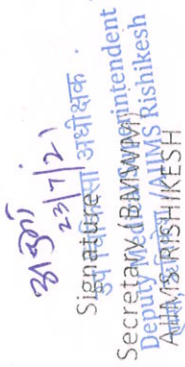 23/7/21
Signature
उप चिकित्सा अधीक्षक
Secretary (BMWM)
Deputy Medical Superintendent
AIIMS Rishikesh
AIIMS RISHIKESH